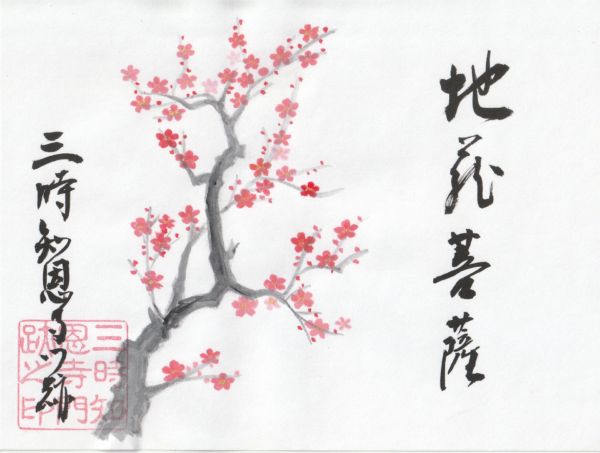 地蔵菩薩
三時知恩寺門跡
三時知
恩寺門
跡之印